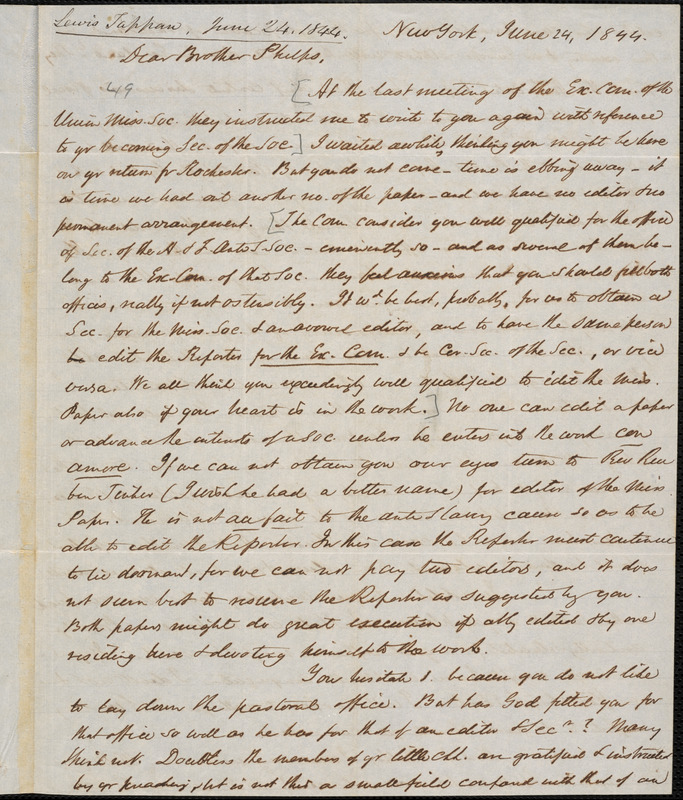 Lewis Tappan, June 24. 1844.
New York, June 24, 1844.
Dear Brother Phelps,
49
[At the last meeting of the Ex. Com. of the
Union Miss. Soc. they instructed me to write to you again with reference
to yr becoming Sec. of the Soc.] I waited awhile, thinking you might be here
on yr return fr Rochester. But you do not come – time is ebbing away – it
is time we had out another no. of the paper – and we have no editor & no
permanent arrangement. [The Com. consider you well qualified for the office
of Sec. of the A. & F. Anti S. Soc. – eminently so – and as several of them be-
long to the Ex. Com. of that Soc. they feel anxious that you should fill both
offices, really if not ostensibly. It wd. be best, probably, for us to obtain a
Sec. for the Miss. Soc. & an avowed editor, and to have the same person
edit the Reporter for the Ex. Com. & be Cor. Sec. of the Soc., or vice
versa. We all think you exceedingly well qualified to edit the Miss.
Paper also if your heart is in the work.] No one can edit a paper
or advance the interests of a Soc. unless he enters into the work con
amore. If we can not obtain you our eyes turn to Rev Reu
ben Tinker (I wish he had a better name) for editor of the Miss.
Paper. He is not au fait to the anti slavery cause so as to be
able to edit the Reporter. In this case the Reporter must continue
to lie dormant, for we can not pay two editors, and it does
not seem best to resume the Reporter as suggested by you.
Both papers might do great execution if ably edited & by one
residing here & devoting himself to the work.
You hesitate 1. because you do not like
to lay down the pastoral office. But has God fitted you for
that office so well as he has for that of an editor & Secy.? Many
think not. Doubtless the members of yr little chh. are gratified & instructed
by yr preaching, but is not this a small field compared with that of an